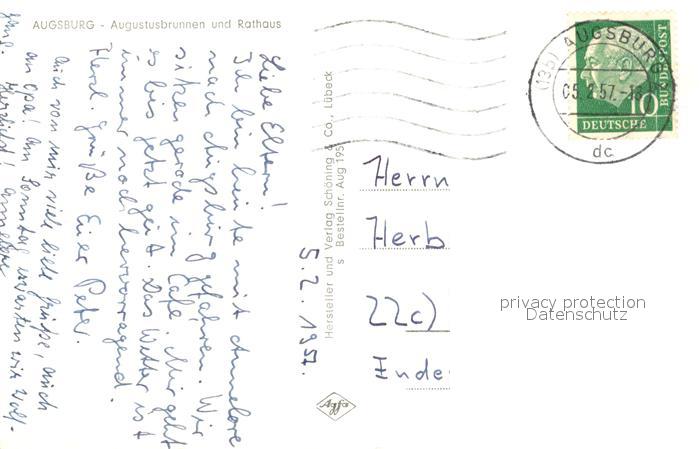 AUGSBURG - Augustusbrunnen und Rathaus
Liebe Eltern!
Ich bin heute mit Annelore
nach Augsburg gefahren. Wir
sitzen gerade im Café. Mir geht
es bis jetzt gut. Das Wetter ist
immer noch hervorragend.
Herzl. Grüße Euer Peter.
Auch von mir viele liebe Grüße, auch
an Opa! Am Sonntag erwarten wir Wolf-
gang. Herzlichst! Annelore
5.2.1957.
Hersteller und Verlag Schöning & Co., Lübeck
s Bestellnr. Aug 195
Agfa
(13b) AUGSBURG
05.2.57.-18
dc
10
DEUTSCHE
BUNDESPOST
Herrn
Herb
22c)
Ende
privacy protection
Datenschutz